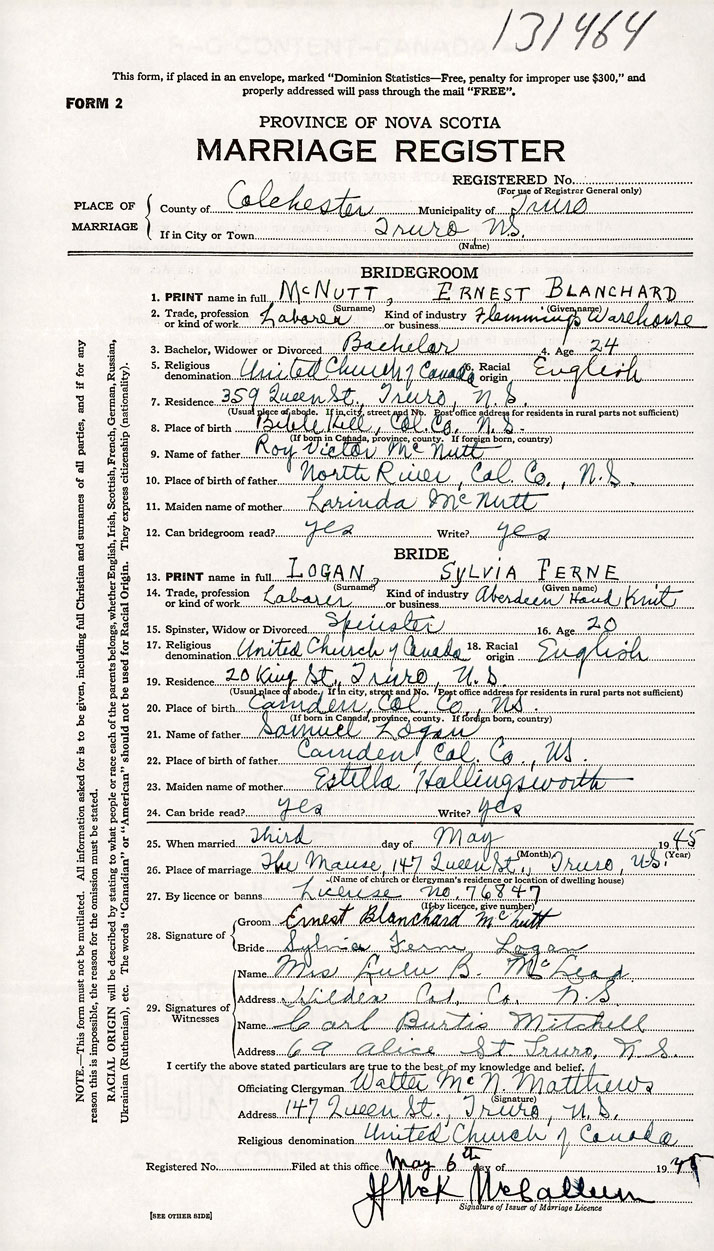 131464
This form, if placed in an envelope, marked "Dominion Statistics—Free, penalty for improper use $300," and
properly addressed will pass through the mail "FREE".
FORM 2
PROVINCE OF NOVA SCOTIA
MARRIAGE REGISTER
REGISTERED No.
(For use of Registrar General only)
PLACE OF MARRIAGE
County of Colchester Municipality of Truro
If in City or Town Truro N.S.
(Name)
BRIDEGROOM
1. PRINT name in full McNUTT, ERNEST BLANCHARD
(Surname) (Given name)
2. Trade, profession or kind of work Laborer Kind of industry or business Flemming's Warehouse
3. Bachelor, Widower or Divorced Bachelor 4. Age 24
5. Religious denomination United Church of Canada 6. Racial origin English
7. Residence 359 Queen St., Truro, N.S.
(Usual place of abode. If in city, street and No. Post office address for residents in rural parts not sufficient)
8. Place of birth Bible Hill, Col. Co. N.S.
(If born in Canada, province, county. If foreign born, country)
9. Name of father Roy Victor McNutt
10. Place of birth of father North River, Col. Co., N.S.
11. Maiden name of mother Larinda McNutt
12. Can bridegroom read? yes Write? yes
BRIDE
13. PRINT name in full LOGAN, SYLVIA FERNE
(Surname) (Given name)
14. Trade, profession or kind of work Laborer Kind of industry or business Aberdeen Hand Knit
15. Spinster, Widow or Divorced Spinster 16. Age 20
17. Religious denomination United Church of Canada 18. Racial origin English
19. Residence 20 King St., Truro, N.S.
(Usual place of abode. If in city, street and No. Post office address for residents in rural parts not sufficient)
20. Place of birth Camden, Col. Co., N.S.
(If born in Canada, province, county. If foreign born, country)
21. Name of father Samuel Logan
22. Place of birth of father Camden, Col. Co., N.S.
23. Maiden name of mother Estella Hallingsworth
24. Can bride read? yes Write? yes
25. When married Third day of May 1945
(Month) (Year)
26. Place of marriage The Manse, 147 Queen St., Truro, N.S.
(Name of church or clergyman's residence or location of dwelling house)
27. By licence or banns License no. 76847
(If by licence, give number)
28. Signature of
Groom Ernest Blanchard McNutt
Bride Sylvia Ferne Logan
29. Signatures of Witnesses
Name Mrs Lulu B. McLead
Address Hilden Col. Co. N.S.
Name Carl Burtis Mitchell
Address 69 Alice St Truro, N.S.
I certify the above stated particulars are true to the best of my knowledge and belief.
Officiating Clergyman Walter McN. Matthews
(Signature)
Address 147 Queen St., Truro, N.S.
Religious denomination United Church of Canada
Registered No. Filed at this office May 6th day of 1945
McCallum
Signature of Issuer of Marriage Licence
[SEE OTHER SIDE]
NOTE.—This form must not be mutilated. All information asked for is to be given, including full Christian and surnames of all parties, and if for any
reason this is impossible, the reason for the omission must be stated.
RACIAL ORIGIN will be described by stating to what people or race each of the parents belongs, whether English, Irish, Scottish, French, German, Russian,
Ukrainian (Ruthenian), etc. The words "Canadian" or "American" should not be used for Racial Origin. They express citizenship (nationality).